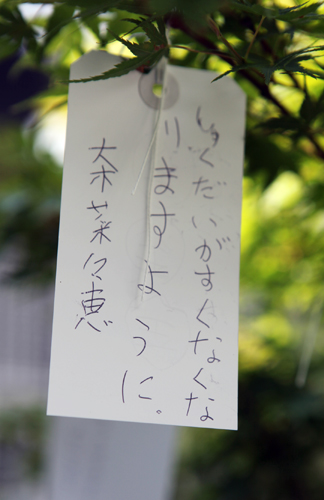 しゅくだいがすくなくな
りますように。
奈菜々恵